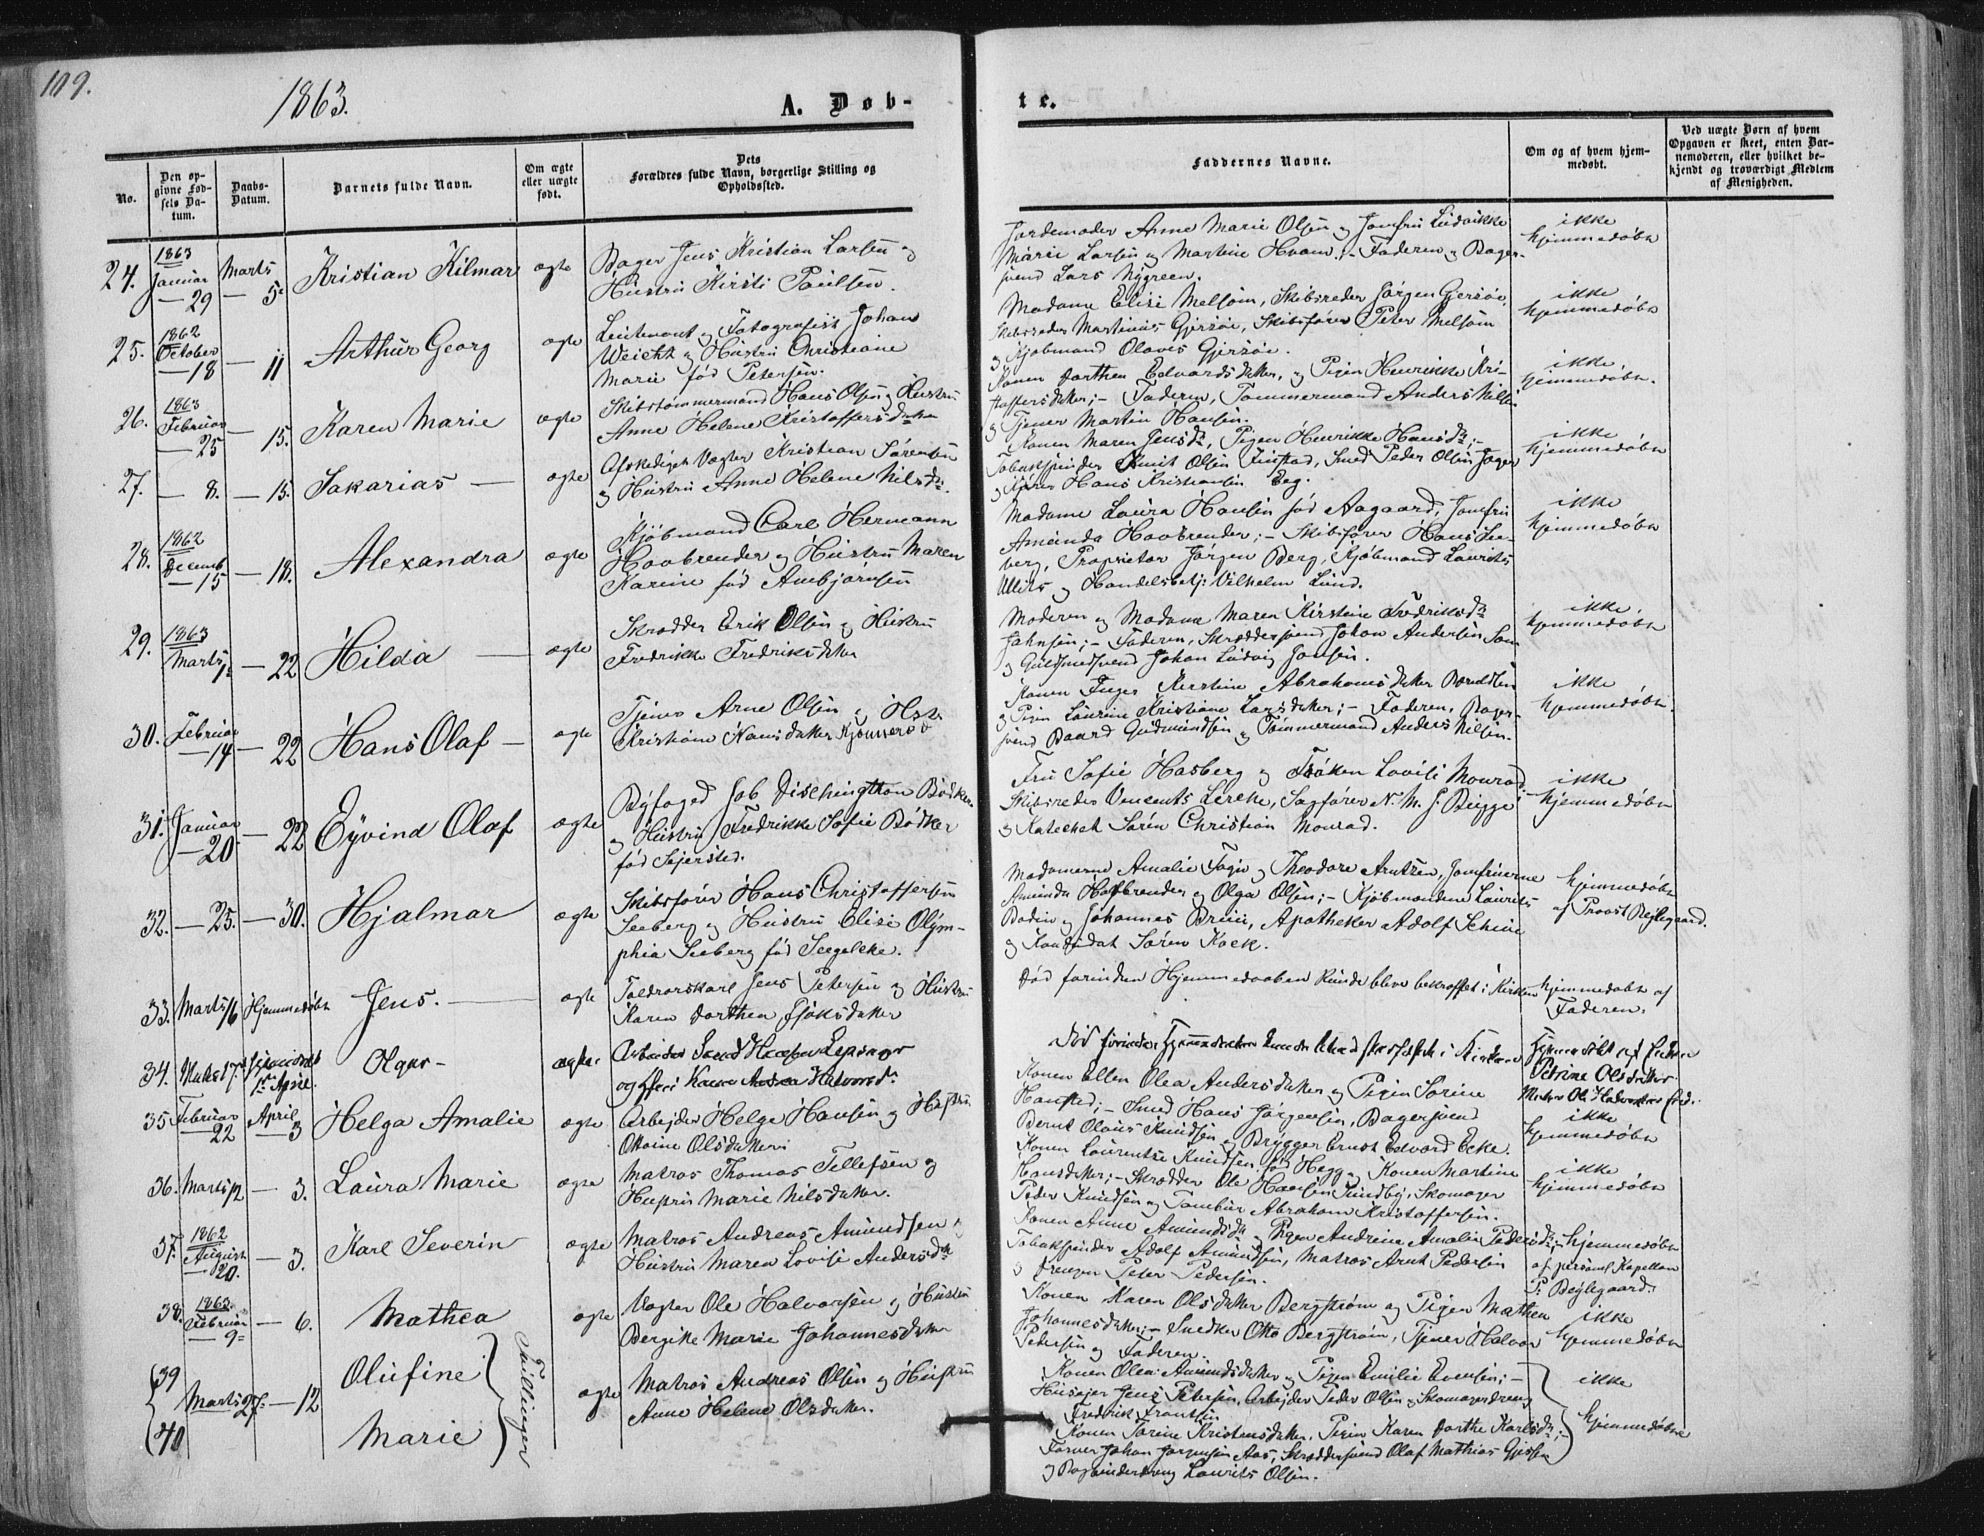 109.
1863.
A. Døb-
te.
No.
Den op-
givne Fød-
sels Da-
tum.
Daabs-
Datum.
Barnets fulde Navn.
Om ægte
eller uægte
født.
Dets
Forældres fulde Navn, borgerlige Stilling og
Opholdssted.
Faddernes Navne.
Om og af hvem hjem-
medøbt.
Ved uægte Børn af hvem
Opgaven er skeet, enten Bar-
nemoderen, eller hvilket be-
kjendt og troværdigt Medlem
af Menigheden.
24.
1863
Januar
— 29
Marts
— 5te
Kristian Hilmar
ægte
Bager Jens Kristian Larsen og
Hustru Kirsti Paulsen.
Jordemoder Anne Marie Olsen og Jomfru Ludvikke
Marie Larsen og Martine Hvam; - Faderen og Bager-
svend Lars Nygreen.
ikke
hjemmedøbt
25.
1862
October
— 18
— 11
Arthur Georg
ægte
Leutenant og Fotografist Johan
Weicht og Hustru Christiane
Marie fød Petersen.
Madame Elisi Melsom, Skibsreder Jørgen Gjersøe,
Skibsreder Martinius Gjersøe, Skibsfører Peter Melsom
og Kjøbmand Olaves Gjersøe.
ikke
hjemmedøbt
26.
1863
Februar
— 25
— 15.
Karen Marie
ægte
Skibstømmermand Hans Olsen og Hustru
Anne Helene Kristoffersdatter
Konen Dorthea Edvardsdatter, og Pigen Henrikke Kri-
stoffersdatter; - Faderen, Tømmermand Anders Nilsen
og Tjener Martin Hansen.
ikke
hjemmedøbt.
27.
— 8.
— 15.
Sakarias —
ægte
Afskediget Vægter Kristian Sørensen
og Hustru Anne Helene Nilsdtr.
Konen Maren Jensdtr, Pigen Henrikke Hansdtr; -
Tobakspinder Knut Olsen Finstad, Smed Peder Olsen Jager
og Hans Kristiansen Eeg.
ikke
hjemmedøbt
28.
1862
Decemb
— 15
— 18.
Alexandra
ægte
Kjøbmand Carl Hermann
Hovbrender og Hustru Maren
Karine fød Anbjørnsen
Madame Laura Hansen fød Aagaard, Jomfru
Amanda Hovbrender; - Skibsfører Hans See-
berg, Proprietær Jørgen Berg, Kjøbmand Laurits
Ullits og Handelsbetj: Vilhelm Lund.
ikke
hjemmedøbt
29.
1863
Marts
1te
— 22
Hilda —
ægte
Skrædder Erik Olsen og Hustru
Fredrikke Fredriksdatter
Moderen og Madame Maren Kirstine Fredriksdtr
Jahnsen; - Faderen, Skræddersvend Johan Andersen Som
og Guldsmedsvend Johan Ludvig Jonsen.
ikke
hjemmedøbt
30.
Februar
— 14
— 22
Hans Olaf —
ægte
Tjener Arne Olsen og Hst
Kristiane Hansdatter Kjønnersø
Konen Inger Kirstine Abrahamsdatter Berntsen
og Pigen Laurine Kristiane Larsdatter; - Faderen, Bager-
svend Baard Gudmundsen og Tømmermand Anders Nilsen.
ikke
hjemmedøbt.
31.
Januar
— 20
— 22
Eyvind Olaf
ægte
Byfoged Job Dischingthon Bødker
og Hustru Fredrikke Sofie Bødker
fød Sejersted.
Fru Sofie Hasberg og Frøken Lovise Monrad,
Skibsreder Vencents Lerche, Sagfører N. M. J. Bügge
og Katechet Søren Christian Monrad.
ikke
hjemmedøbt
32.
— 25.
— 30.
Hjalmar
ægte
Skibsfører Hans Christoffersen
Seeberg og Hustru Elisi Olym-
phia Seeberg fød Seegelcke.
Madamerne Amalie Fogn og Theodore Arntzen, Jomfruerne
Amanda Hovbrender og Olga Olsen; - Kjøbmændene Laurits
Bodin og Johannes Bruu, Apotheker Adolf Schiue
og Kandidat Søren Kock.
hjemmedøbt
af Provst Bejlegaard.
33.
Marts 16
Hjemmedøbt
Jens. —
ægte
Toldrorskarl Jens Petersen og Hustru
Karen Dorthea Isaksdatter
Død forinden Hjemmedaaben kunde blive bekræftet i Kirken
hjemmedøbt af
Faderen.
34.
Marts 17.
Hjemmedøbt
1ste April.
Olga —
ægte.
død forinden Hjemmedaaben kunde blive stadfæstet i Kirken
Hjemmedøbt af Enken
Petrine Olsdatter
35
Februar
— 22
April
— 3
Helga Amalie
ægte
Arbejder Helge Hansen og Hustru
Ottine Olsdatter
Konen Ellen Olea Andersdatter og Pigen Sørine
Hansted; - Smed Hans Jørgensen, Bagersvend
Bernt Olaus Knudsen og Brygger Ernst Edvard Ecke.
ikke
hjemmedøbt
36.
Marts 12
— 3.
Laura Marie
ægte
Matros Thomas Tellefsen og
Hustru Marie Nilsdatter.
Konen Laurentse Knudsen fød Hegg og Konen Martine
Hansdatter; - Skrædder Ole Hansen Sundby, Skomager
Peder Knudsen og Tambur Abraham Kristoffersen.
ikke
hjemmedøbt
37.
1862
August
— 20.
— 3.
Karl Severin
ægte
Matros Andreas Amundsen og
Hustru Maren Lovise Andersdtr
Konen Anne Amundsdtr og Pigen Andrine Amalie Pedersdtr; -
Tobakspinder Adolf Amundsen, Matros Arnt Pedersen
og Drengen Peter Pedersen.
hjemmedøbt
af personel Kapellan
P: Bejlegaard.
38.
1863.
Februar
— 9de
— 6.
Mathea
ægte
Vægter Ole Halvorsen og Hustru
Bergitte Marie Johannesdatter
Konen Karen Olsdatter Bergstrøm og Pigen Mathea
Johannesdatter; - Snedker Otto Bergstrøm, Tjener Halvor
Pedersen og Faderen.
ikke
hjemmedøbt
39
40
Marts 27de
— 12
Olufine
Marie
Tvillinger
ægte
Matros Andreas Olsen og Hustru
Anne Helene Olsdatter.
Konen Olea Amundsdatter og Pigen Emilie Evensen; -
Husejer Jens Petersen, Arbejder Peder Olsen og Skomagerdreng
Fredrik Frantsen
Konen Sørine Kristensdatter, Pigen Karen Dorthe Karlsdtr; -
Farver Johan Jørgensen Aas, Skræddersvend Olaf Mathias Gjessen
og Bogbinderdreng Laurits Olsen.
ikke
hjemmedøbte